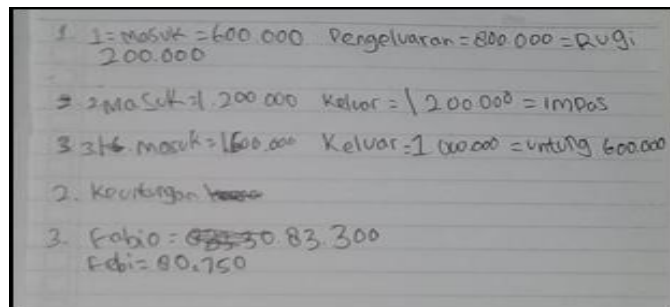 1 1 = masuk = 600.000 Pengeluaran = 800.000 = Rugi
200.000
2 2 Masuk = 1.200 000 Keluar = 1 200.000 = impas
3 3 masuk = 1600.000 Keluar = 1 000.000 = untung 600.000
2. Keuntungan
3. Fabio = 83.300
Febi = 80.750